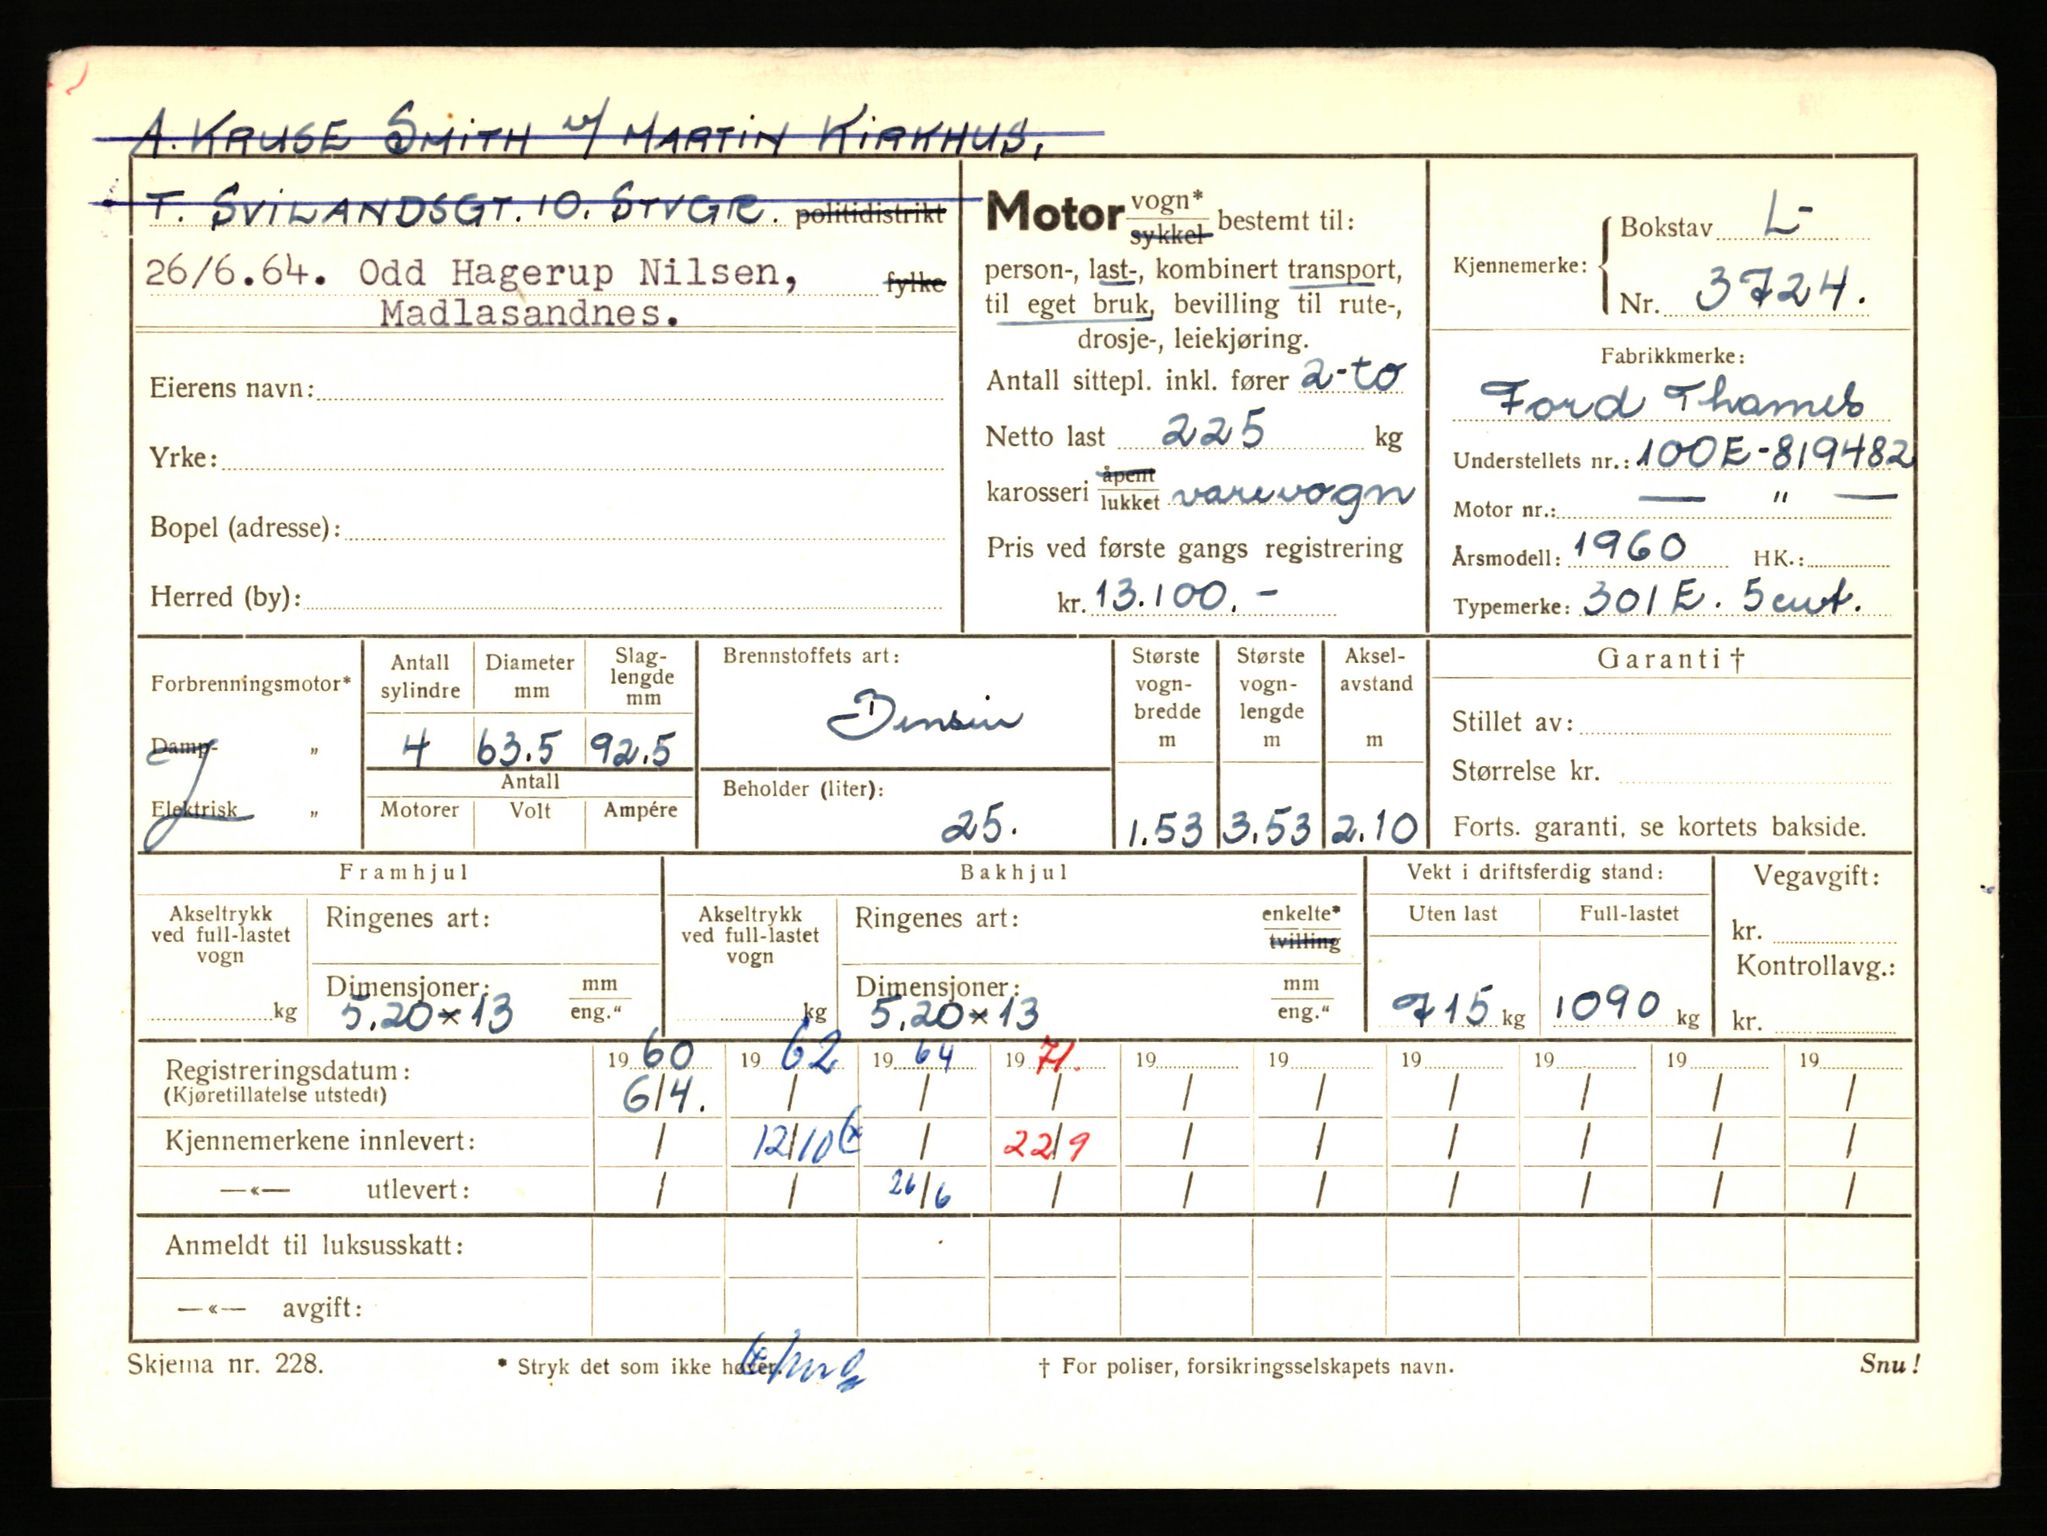 A. KRUSE SMITH v/ MARTIN KIRKHUS,
T. SVILANDSGT. 10. STVGR. politidistrikt
26/6.64. Odd Hagerup Nilsen, fylke
Madlasandnes.
Eierens navn:
Yrke:
Bopel (adresse):
Herred (by):
Motor vogn* sykkel bestemt til:
person-, last-, kombinert transport,
til eget bruk, bevilling til rute-,
drosje-, leiekjøring.
Antall sittepl. inkl. fører 2-to
Netto last 225 kg
karosseri åpent lukket varevogn
Pris ved første gangs registrering
kr. 13.100.-
Kjennemerke: Bokstav L-
Nr. 3724.
Fabrikkmerke:
Ford Thames
Understellets nr.: 100E-819482
Motor nr.: — " —
Årsmodell: 1960 HK.:
Typemerke: 301E. 5cwt.
Forbrenningsmotor*
Damp- „
Elektrisk „
Antall sylindre
Diameter mm
Slag-lengde mm
4 63.5 92.5
Antall
Motorer Volt Ampére
Brennstoffets art:
Bensin
Beholder (liter):
25.
Største vogn-bredde m
1.53
Største vogn-lengde m
3.53
Aksel-avstand m
2.10
Garanti †
Stillet av:
Størrelse kr.
Forts. garanti, se kortets bakside.
Framhjul
Akseltrykk
ved full-lastet
vogn
kg
Ringenes art:
Dimensjoner: mm
5.20×13 eng."
Bakhjul
Akseltrykk
ved full-lastet
vogn
kg
Ringenes art: enkelte* tvilling
Dimensjoner: mm
5.20×13 eng."
Vekt i driftsferdig stand:
Uten last Full-lastet
715 kg 1090 kg
Vegavgift:
kr.
Kontrollavg.:
kr.
Registreringsdatum: 1960 1962 1964 1971. 19 19 19 19 19 19
(Kjøretillatelse utstedt) 6/4. / / / / / / / / /
Kjennemerkene innlevert: / 12/10 (x / 22/9 / / / / / /
—«— utlevert: / / 26/6 / / / / / / /
Anmeldt til luksusskatt:
—«— avgift:
Skjema nr. 228. * Stryk det som ikke høver. † For poliser, forsikringsselskapets navn. Snu!